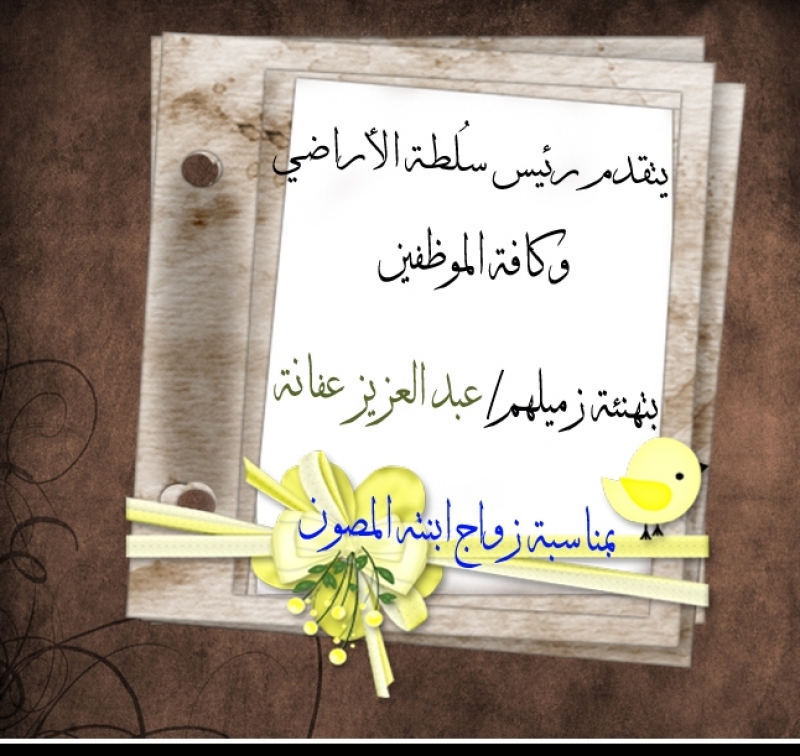 يتقدم رئيس سُلطة الأراضي
وكافة الموظفين
بتهنئة زميلهم/ عبد العزيز عفانة
بمناسبة زواج ابنته المصون